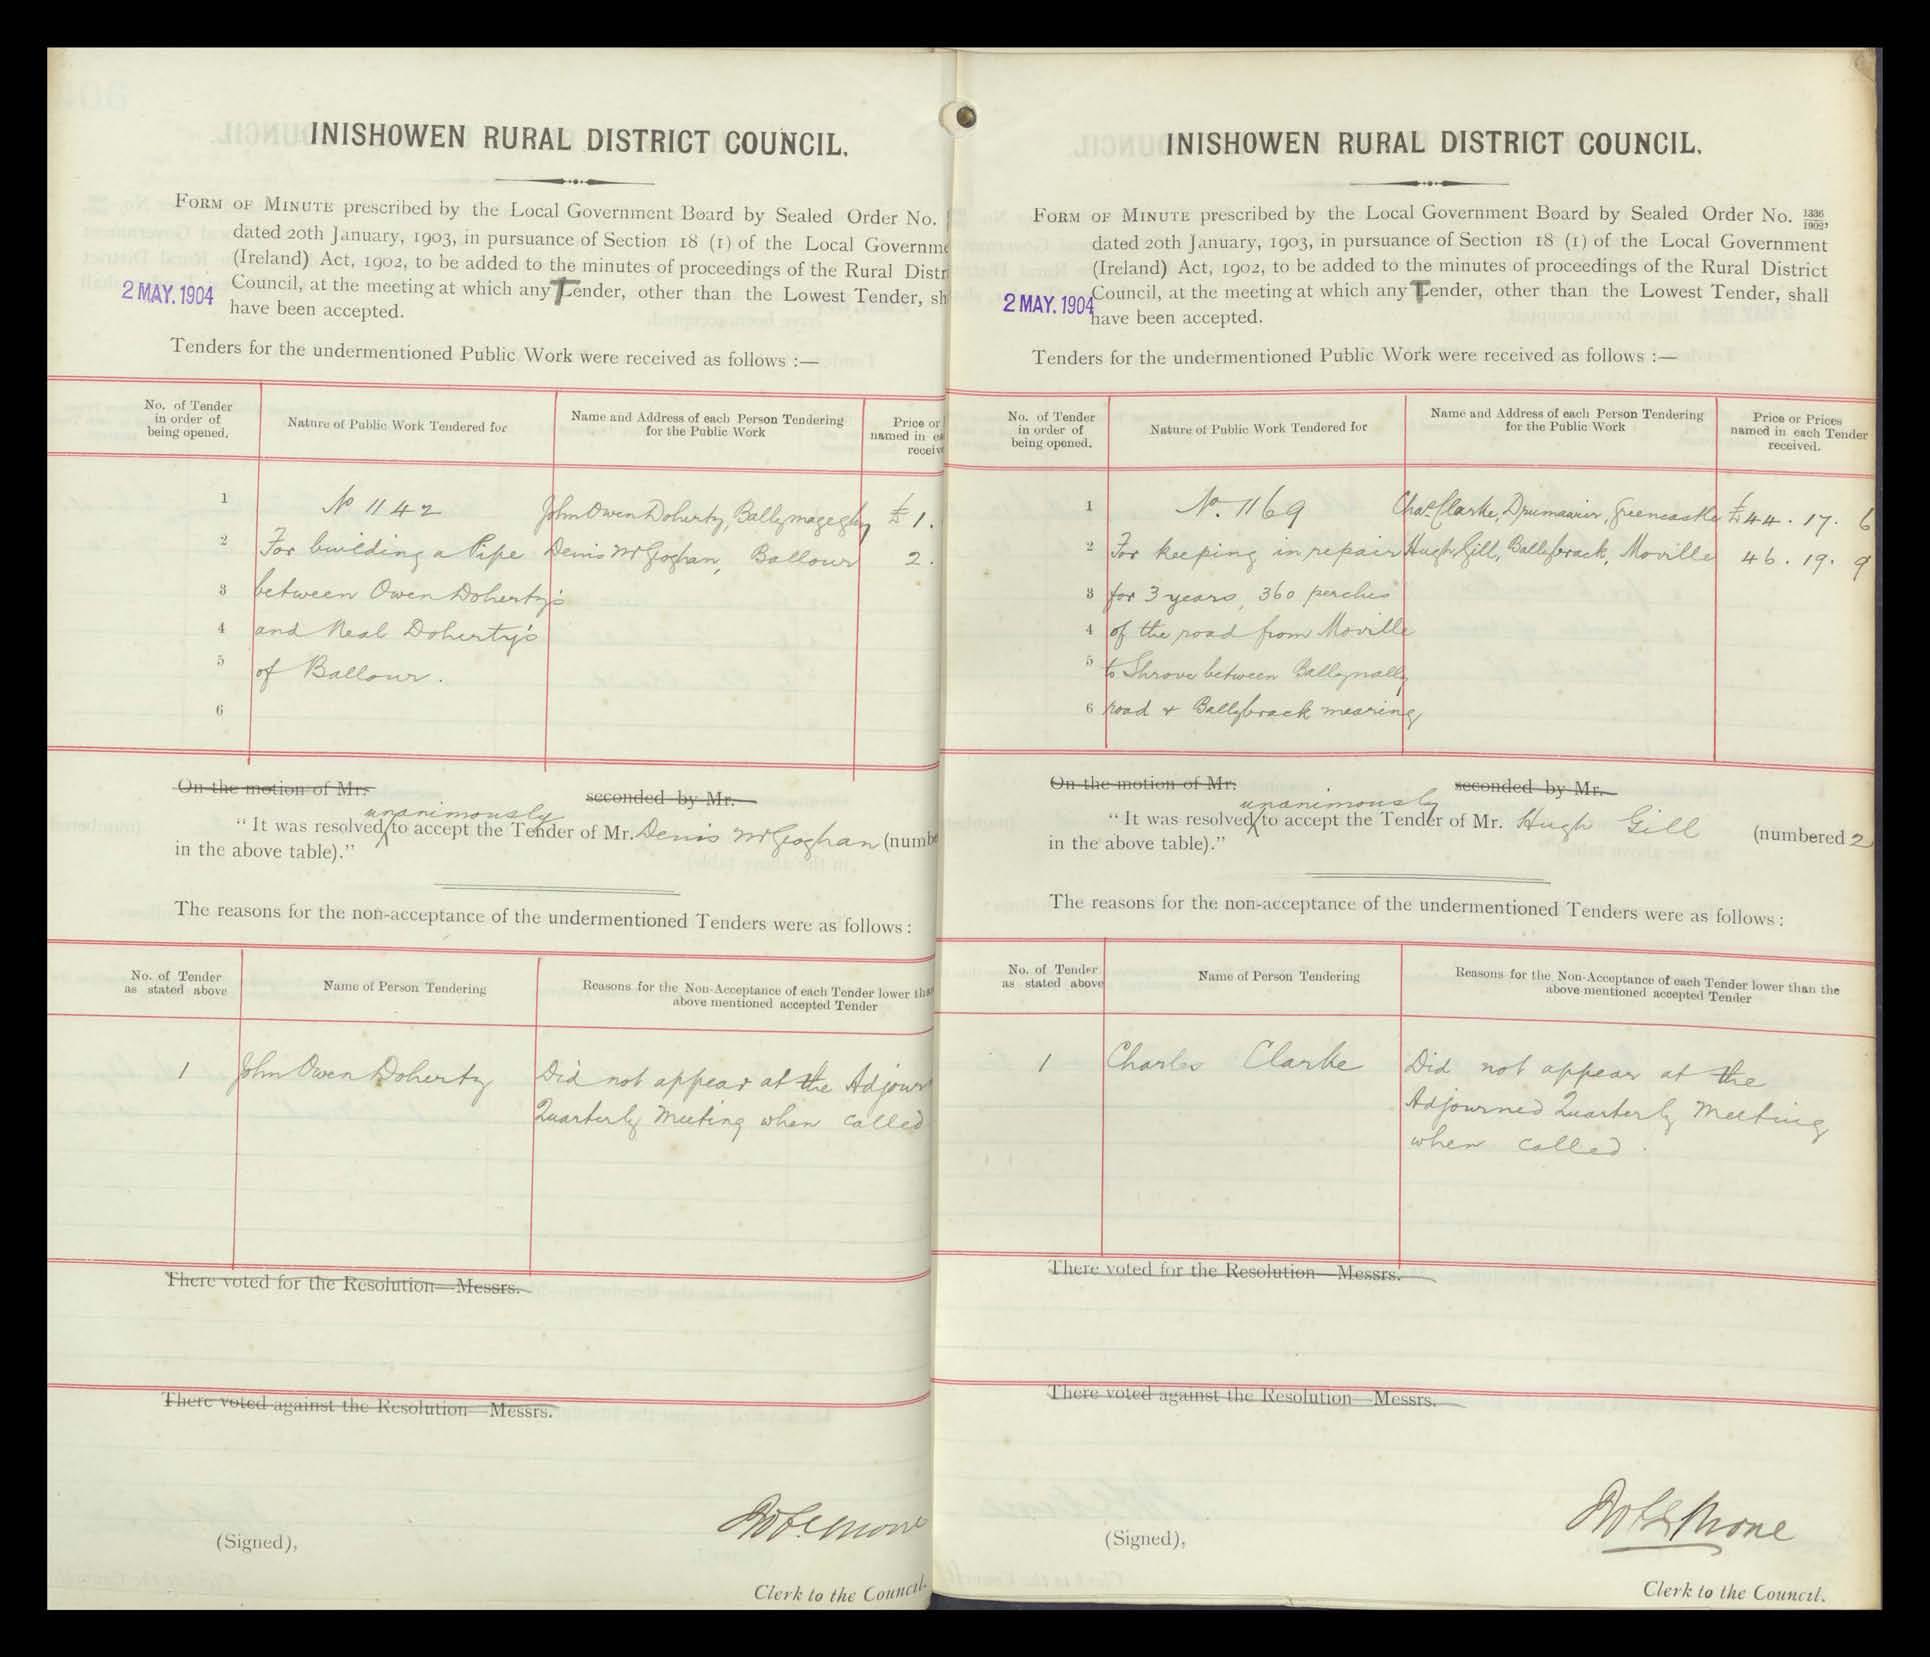 INISHOWEN RURAL DISTRICT COUNCIL.
FORM OF MINUTE prescribed by the Local Government Board by Sealed Order No.
dated 20th January, 1903, in pursuance of Section 18 (1) of the Local Governme
(Ireland) Act, 1902, to be added to the minutes of proceedings of the Rural Distr
Council, at the meeting at which any Tender, other than the Lowest Tender, sh
have been accepted.
2 MAY. 1904
Tenders for the undermentioned Public Work were received as follows :—
No. of Tender in order of being opened.
Nature of Public Work Tendered for
Name and Address of each Person Tendering for the Public Work
Price or
named in ea
receiv
1 No 1142 John Owen Doherty, Ballymageghy £1.
2 For building a Pipe Denis McGeoghan, Ballour 2.
3 between Owen Doherty's
4 and Neal Doherty's
5 of Ballour.
6
On the motion of Mr. seconded by Mr.
unanimously
"It was resolved to accept the Tender of Mr. Denis McGeoghan (numbe
in the above table)."
The reasons for the non-acceptance of the undermentioned Tenders were as follows :
No. of Tender as stated above
Name of Person Tendering
Reasons for the Non-Acceptance of each Tender lower than
above mentioned accepted Tender
1 John Owen Doherty Did not appear at the Adjourn
Quarterly Meeting when called
There voted for the Resolution—Messrs.
There voted against the Resolution—Messrs.
(Signed),
Clerk to the Council.
INISHOWEN RURAL DISTRICT COUNCIL.
FORM OF MINUTE prescribed by the Local Government Board by Sealed Order No. 1336/1902,
dated 20th January, 1903, in pursuance of Section 18 (1) of the Local Government
(Ireland) Act, 1902, to be added to the minutes of proceedings of the Rural District
Council, at the meeting at which any Tender, other than the Lowest Tender, shall
have been accepted.
2 MAY. 1904
Tenders for the undermentioned Public Work were received as follows :—
No. of Tender in order of being opened.
Nature of Public Work Tendered for
Name and Address of each Person Tendering for the Public Work
Price or Prices named in each Tender received.
1 No. 1169 Chas. Clarke, Drumaweir, Greencastle £44. 17. 6
2 For keeping in repair Hugh Gill, Ballybrack, Moville 46. 19. 9
3 for 3 years, 360 perches
4 of the road from Moville
5 to Shrove between Ballynally
6 road & Ballybrack mearing
On the motion of Mr. seconded by Mr.
unanimously
"It was resolved to accept the Tender of Mr. Hugh Gill (numbered 2
in the above table)."
The reasons for the non-acceptance of the undermentioned Tenders were as follows :
No. of Tender as stated above
Name of Person Tendering
Reasons for the Non-Acceptance of each Tender lower than the
above mentioned accepted Tender
1 Charles Clarke Did not appear at the
Adjourned Quarterly Meeting
when called.
There voted for the Resolution—Messrs.
There voted against the Resolution—Messrs.
(Signed),
Clerk to the Council.